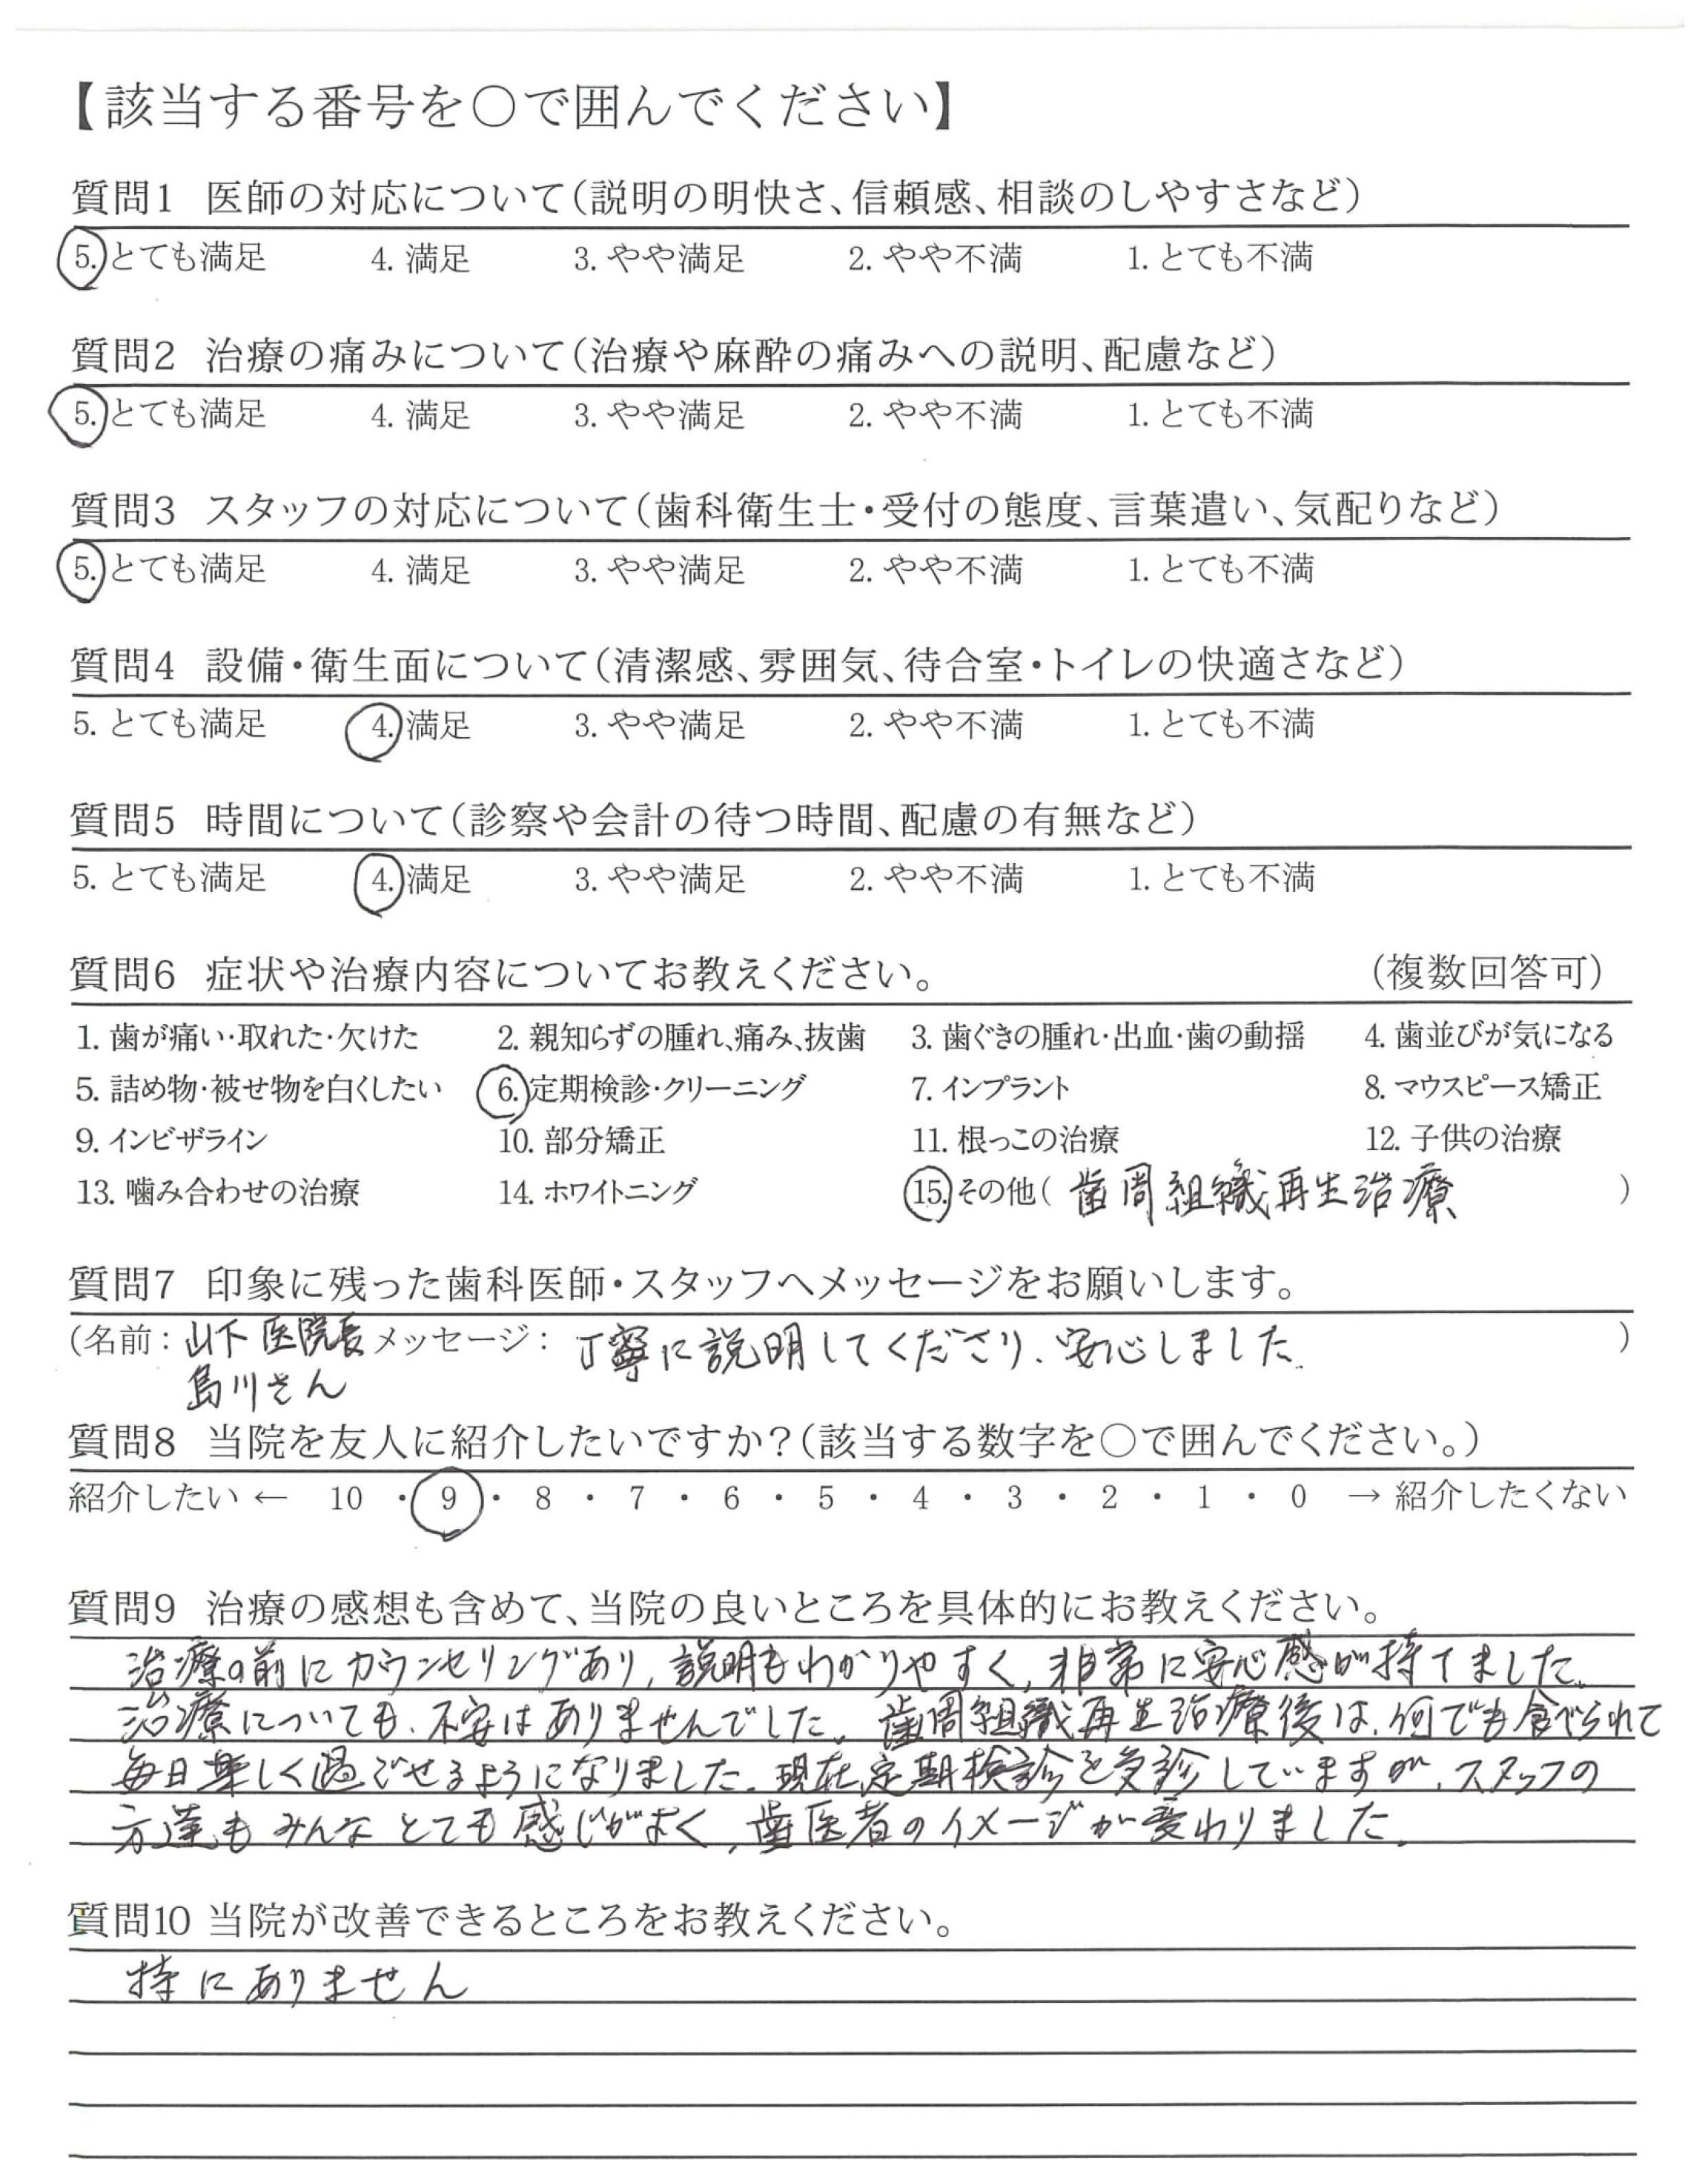 【該当する番号を○で囲んでください】
質問1 医師の対応について(説明の明快さ、信頼感、相談のしやすさなど)
5. とても満足 4. 満足 3. やや満足 2. やや不満 1. とても不満
質問2 治療の痛みについて(治療や麻酔の痛みへの説明、配慮など)
5. とても満足 4. 満足 3. やや満足 2. やや不満 1. とても不満
質問3 スタッフの対応について(歯科衛生士・受付の態度、言葉遣い、気配りなど)
5. とても満足 4. 満足 3. やや満足 2. やや不満 1. とても不満
質問4 設備・衛生面について(清潔感、雰囲気、待合室・トイレの快適さなど)
5. とても満足 4. 満足 3. やや満足 2. やや不満 1. とても不満
質問5 時間について(診察や会計の待つ時間、配慮の有無など)
5. とても満足 4. 満足 3. やや満足 2. やや不満 1. とても不満
質問6 症状や治療内容についてお教えください。 (複数回答可)
1. 歯が痛い・取れた・欠けた 2. 親知らずの腫れ、痛み、抜歯 3. 歯ぐきの腫れ・出血・歯の動揺 4. 歯並びが気になる
5. 詰め物・被せ物を白くしたい 6. 定期検診・クリーニング 7. インプラント 8. マウスピース矯正
9. インビザライン 10. 部分矯正 11. 根っこの治療 12. 子供の治療
13. 噛み合わせの治療 14. ホワイトニング 15. その他( 歯周組織再生治療 )
質問7 印象に残った歯科医師・スタッフへメッセージをお願いします。
(名前: 山下医院長 メッセージ: 丁寧に説明してくださり、安心しました。 )
島川さん
質問8 当院を友人に紹介したいですか?(該当する数字を○で囲んでください。)
紹介したい ← 10 ・ 9 ・ 8 ・ 7 ・ 6 ・ 5 ・ 4 ・ 3 ・ 2 ・ 1 ・ 0 → 紹介したくない
質問9 治療の感想も含めて、当院の良いところを具体的にお教えください。
治療の前にカウンセリングあり、説明もわかりやすく、非常に安心感が持てました。
治療についても、不安はありませんでした。歯周組織再生治療後は、何でも食べられて
毎日楽しく過ごせるようになりました。現在定期検診を受診していますが、スタッフの
方達もみんなとても感じがよく、歯医者のイメージが変わりました。
質問10 当院が改善できるところをお教えください。
特にありません